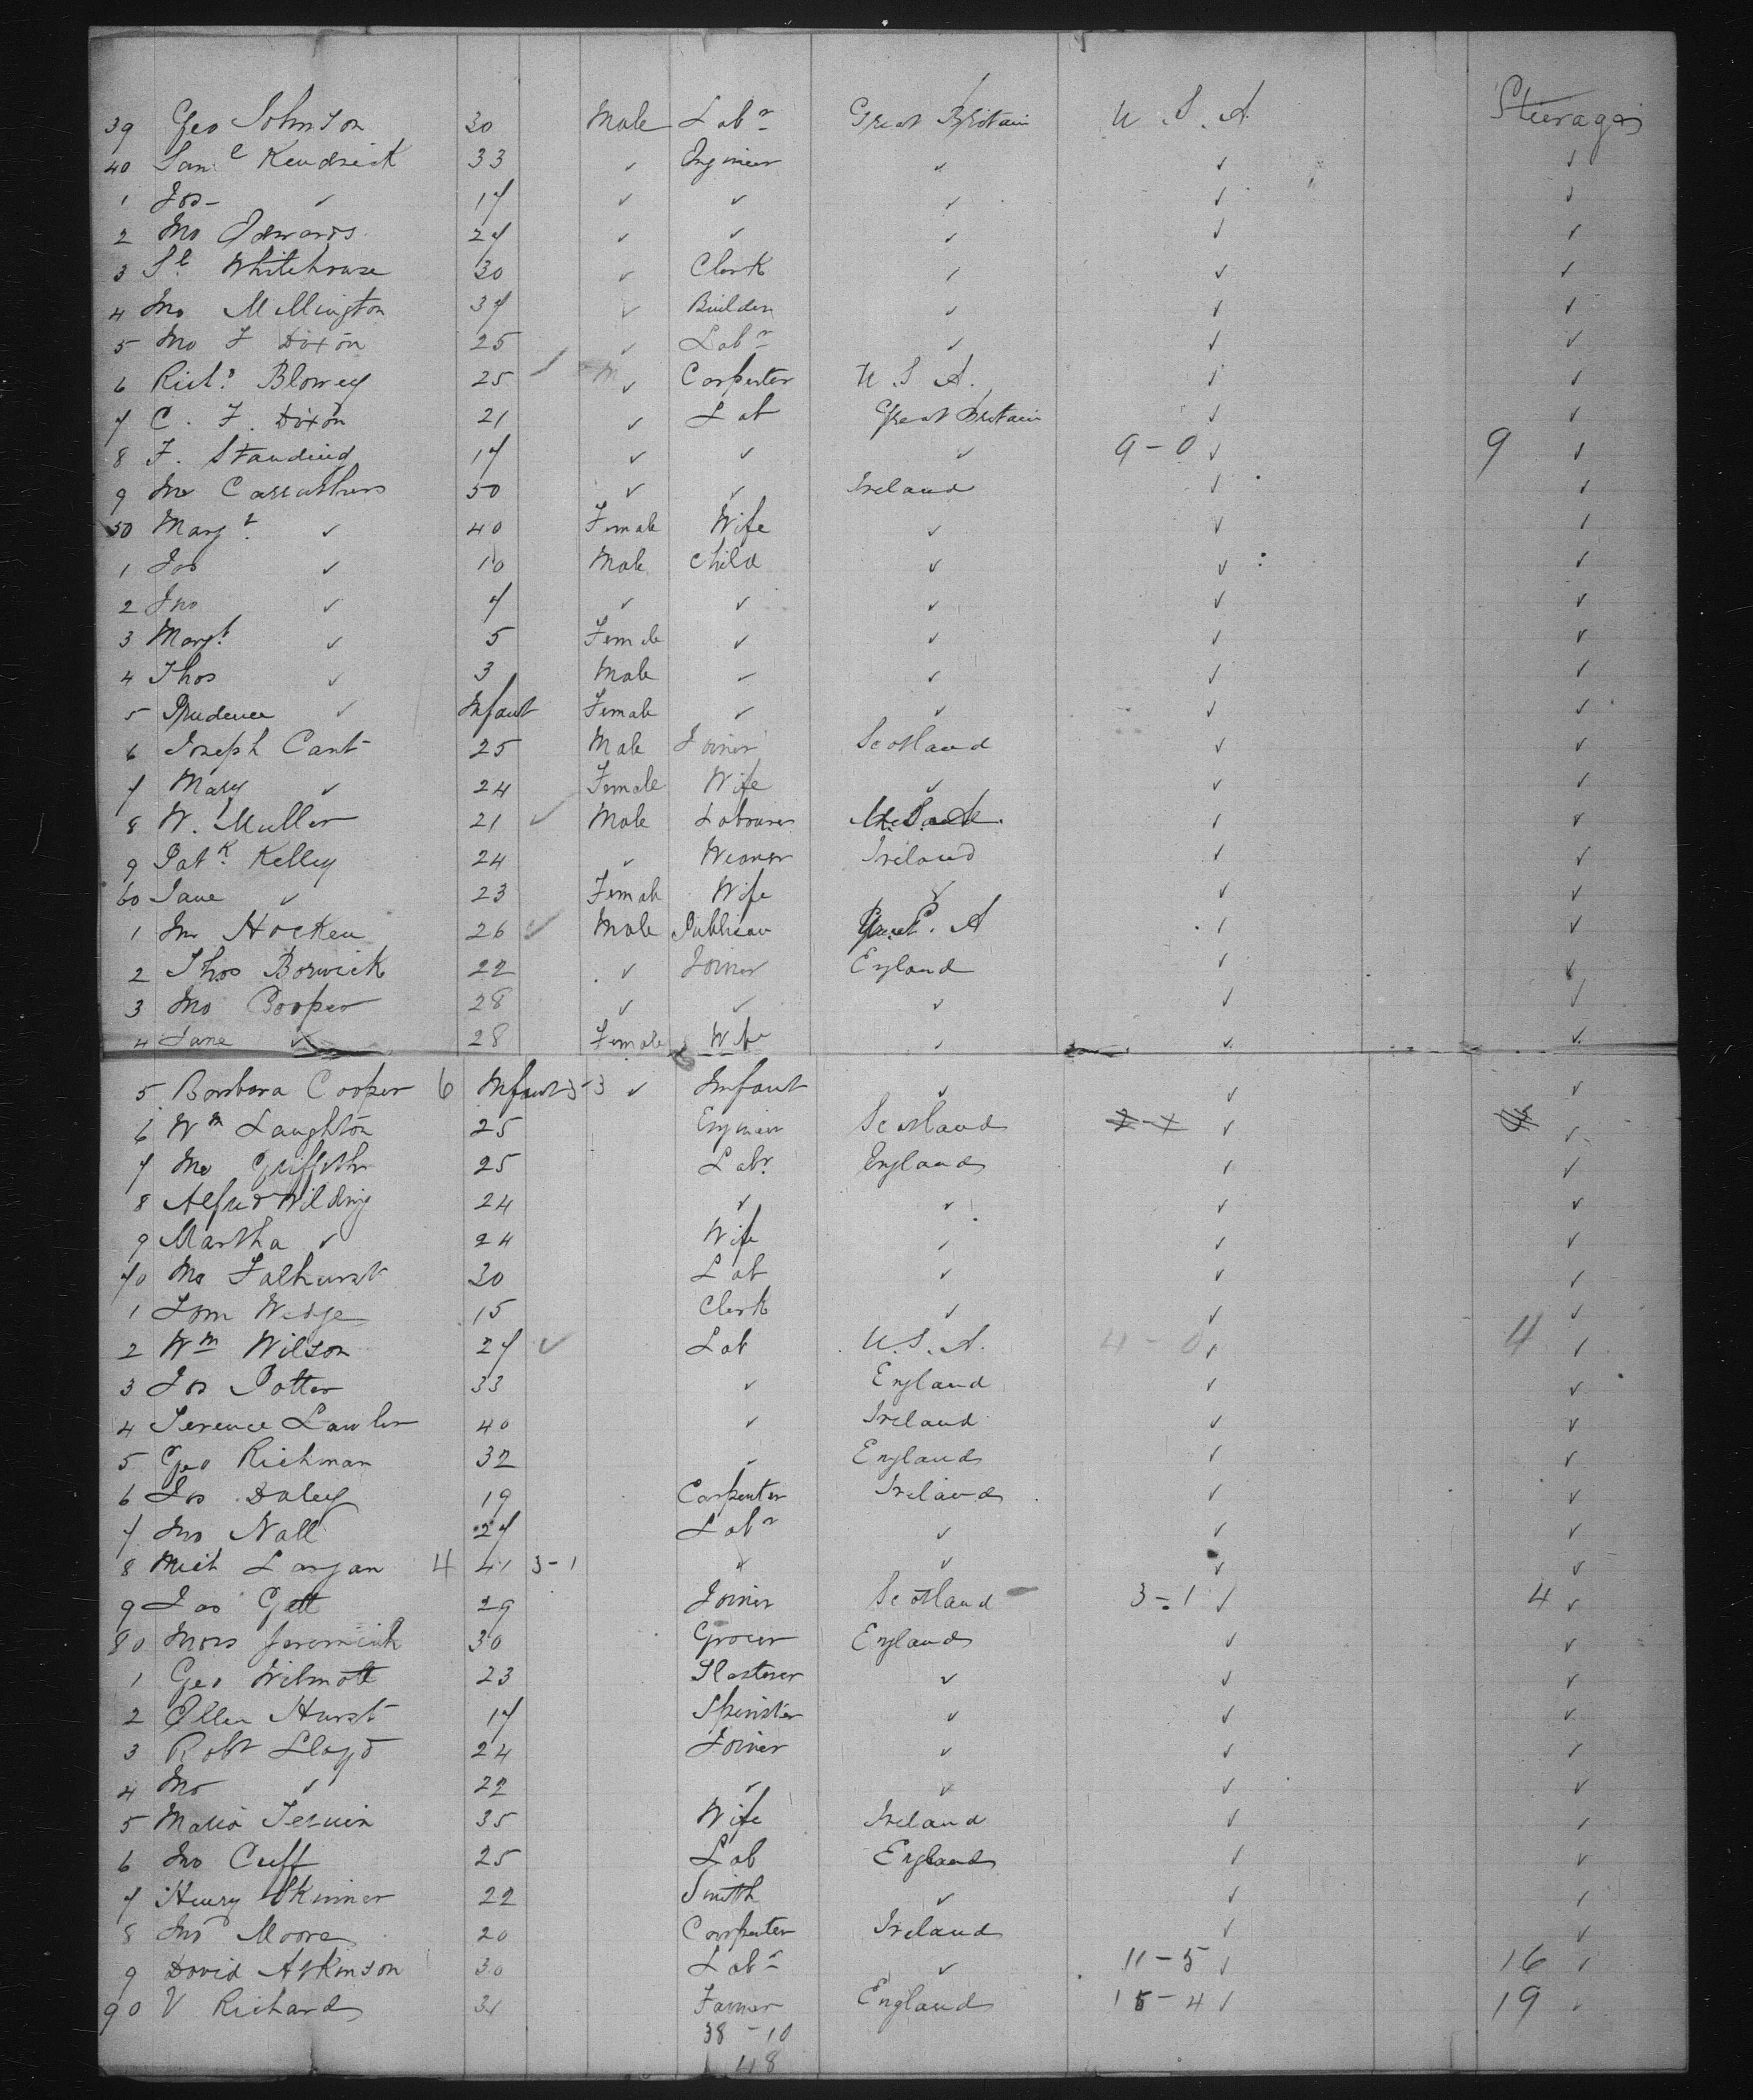 39 Geo Johnson 30 Male Labr Great Britain U.S.A. Steerages
40 Saml Kendrick 33 ✓ Engineer ✓ ✓ ✓
1 Jos - ✓ 17 ✓ ✓ ✓ ✓ ✓
2 Jno Edwards 27 ✓ ✓ ✓ ✓ ✓
3 Sl Whitehouse 30 ✓ Clerk ✓ ✓ ✓
4 Jno Millington 37 ✓ Builder ✓ ✓ ✓
5 Jno F Dixon 25 ✓ Labr ✓ ✓ ✓
6 Richd Blowey 25 ✓ ✓ Carpenter U.S.A. ✓ ✓
7 C. F. Dixon 21 ✓ Lab Great Britain ✓ ✓
8 F. Standing 17 ✓ ✓ ✓ 9-0 ✓ 9 ✓
9 Jno Carruthers 50 ✓ ✓ Ireland ✓ ✓
50 Margt ✓ 40 Female Wife ✓ ✓ ✓
1 Jos ✓ 10 Male Child ✓ ✓ ✓
2 Jno ✓ 7 ✓ ✓ ✓ ✓ ✓
3 Margt ✓ 5 Female ✓ ✓ ✓ ✓
4 Thos ✓ 3 Male ✓ ✓ ✓ ✓
5 Prudence ✓ Infant Female ✓ ✓ ✓ ✓
6 Joseph Cant 25 Male Joiner Scotland ✓ ✓
7 Mary ✓ 24 Female Wife ✓ ✓ ✓
8 W. Muller 21 ✓ Male Labourer ✓ ✓
9 Patk Kelley 24 ✓ Weaver Ireland ✓ ✓
60 Jane ✓ 23 Female Wife ✓ ✓ ✓
1 Jno Hocken 26 ✓ Male Publican A ✓ ✓
2 Thos Borwick 22 ✓ Joiner England ✓ ✓
3 Jno Cooper 28 ✓ ✓ ✓ ✓ ✓
4 Jane ✓ 28 Female Wife ✓ ✓ ✓
5 Barbara Cooper 6 Infant 3-3 ✓ Infant ✓ ✓ ✓
6 Wm Laughton 25 Engineer Scotland ✓ ✓
7 Jno Griffith 25 Labr England ✓ ✓
8 Alfred Wilding 24 ✓ ✓ ✓ ✓
9 Martha ✓ 24 Wife ✓ ✓ ✓
70 Jno Falhurst 30 Lab ✓ ✓ ✓
1 Tom Wedge 15 Clerk ✓ ✓ ✓
2 Wm Wilson 27 ✓ Lab U.S.A. 4-0 ✓ 4 ✓
3 Jos Potter 33 ✓ England ✓ ✓
4 Terence Lawler 40 ✓ Ireland ✓ ✓
5 Geo Richman 32 ✓ England ✓ ✓
6 Jos Daley 19 Carpenter Ireland ✓ ✓
7 Jno Nall 27 Labr ✓ ✓ ✓
8 Mich Largan 4 41 3-1 ✓ ✓ ✓ ✓
9 Jas Gett 29 Joiner Scotland 3-1 ✓ 4 ✓
80 Jeremiah 30 Grocer England ✓ ✓
1 Geo Wilmott 23 Plasterer ✓ ✓ ✓
2 Ellen Hurst 17 Spinster ✓ ✓ ✓
3 Robt Lloyd 24 Joiner ✓ ✓ ✓
4 Jno ✓ 22 ✓ ✓ ✓ ✓
5 Maria 35 Wife Ireland ✓ ✓
6 Jno Cuff 25 Lab England ✓ ✓
7 Henry Skinner 22 Smith ✓ ✓ ✓
8 Jno Moore 20 Carpenter Ireland ✓ ✓
9 David Atkinson 30 Labr ✓ 11-5 ✓ 16 ✓
90 V Richards 31 Farmer England 15-4 ✓ 19 ✓
38-10
48